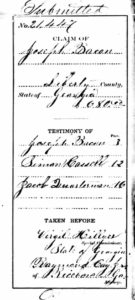 Submitted
No. 21447
CLAIM OF
Joseph Bacon
Liberty County,
State of Georgia
$ 680.00
TESTIMONY OF
Joseph Bacon 3
Simon Cassell 12
Jacob Quarterman 16
TAKEN BEFORE
Virgil Hillyer
State of Georgia
Raymond Cay Jr